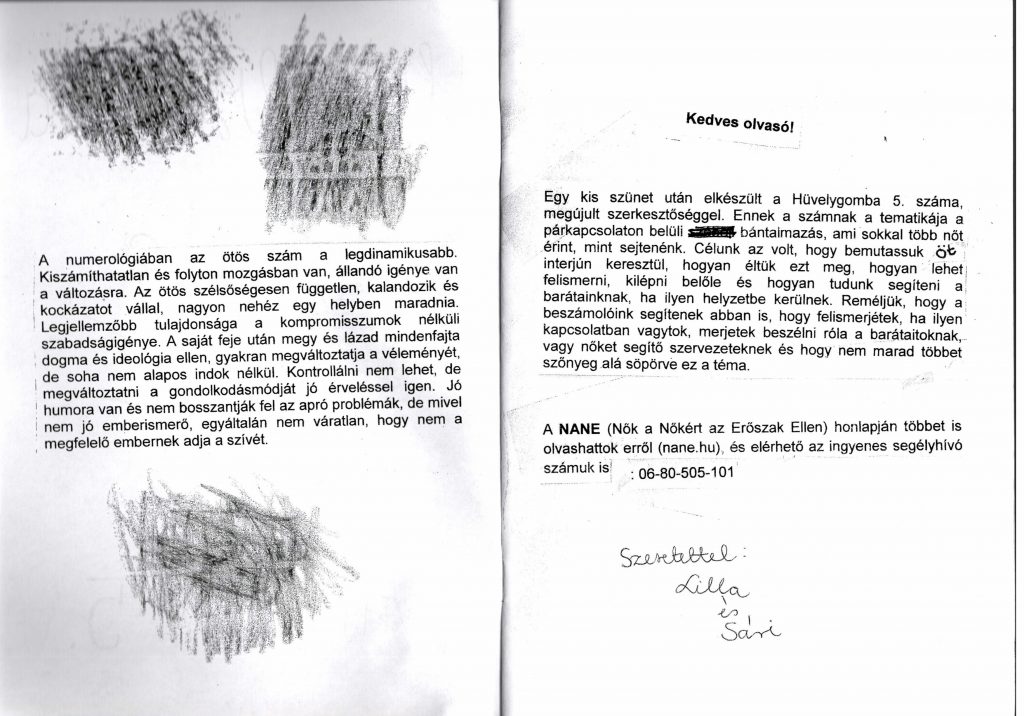 A numerológiában az ötös szám a legdinamikusabb.
Kiszámíthatatlan és folyton mozgásban van, állandó igénye van
a változásra. Az ötös szélsőségesen független, kalandozik és
kockázatot vállal, nagyon nehéz egy helyben maradnia.
Legjellemzőbb tulajdonsága a kompromisszumok nélküli
szabadságigénye. A saját feje után megy és lázad mindenfajta
dogma és ideológia ellen, gyakran megváltoztatja a véleményét,
de soha nem alapos indok nélkül. Kontrollálni nem lehet, de
megváltoztatni a gondolkodásmódját jó érveléssel igen. Jó
humora van és nem bosszantják fel az apró problémák, de mivel
nem jó emberismerő, egyáltalán nem váratlan, hogy nem a
megfelelő embernek adja a szívét.
Kedves olvasó!
Egy kis szünet után elkészült a Hüvelygomba 5. száma,
megújult szerkesztőséggel. Ennek a számnak a tematikája a
párkapcsolaton belüli bántalmazás, ami sokkal több nőt
érint, mint sejtenénk. Célunk az volt, hogy bemutassuk öt
interjún keresztül, hogyan éltük ezt meg, hogyan lehet
felismerni, kilépni belőle és hogyan tudunk segíteni a
barátainknak, ha ilyen helyzetbe kerülnek. Reméljük, hogy a
beszámolóink segítenek abban is, hogy felismerjétek, ha ilyen
kapcsolatban vagytok, merjetek beszélni róla a barátaitoknak,
vagy nőket segítő szervezeteknek és hogy nem marad többet
szőnyeg alá söpörve ez a téma.
A NANE (Nők a Nőkért az Erőszak Ellen) honlapján többet is
olvashattok erről (nane.hu), és elérhető az ingyenes segélyhívó
számuk is : 06-80-505-101
Szeretettel:
Lilla
és
Sári